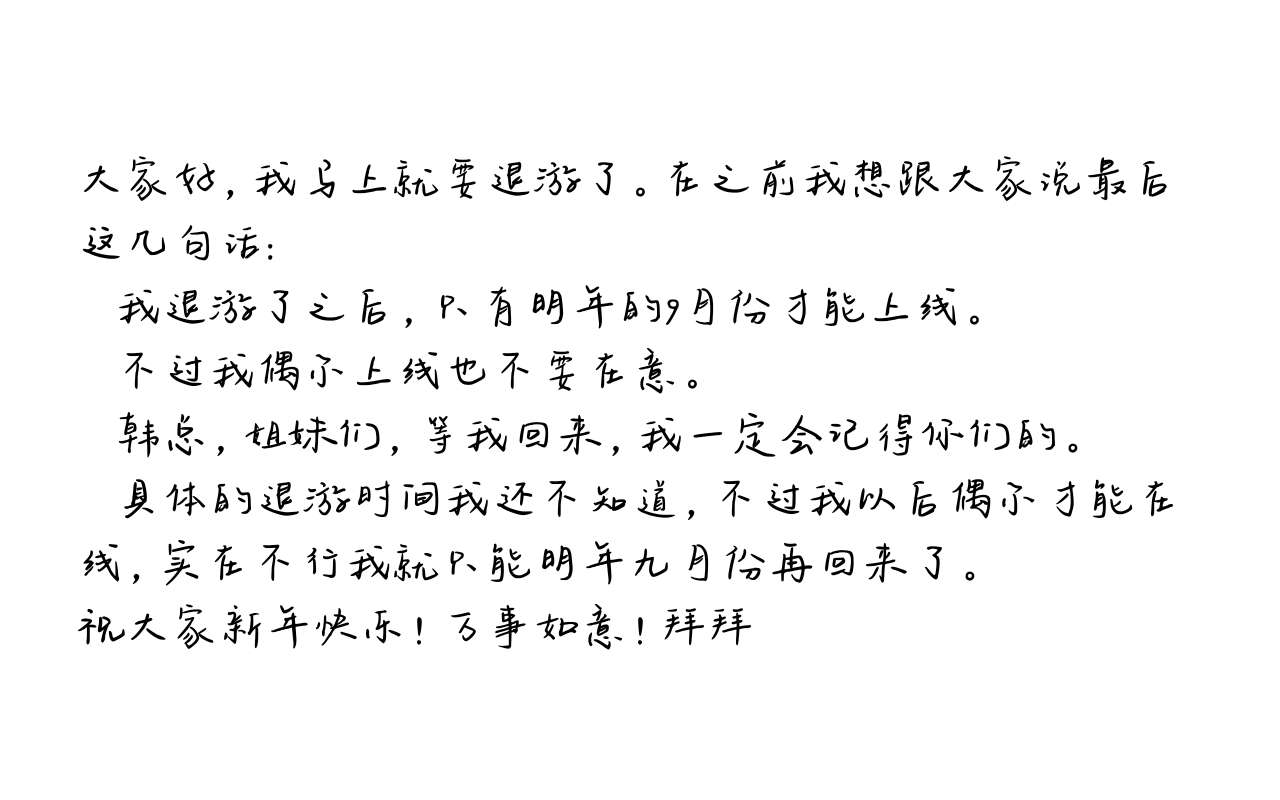 大家好，我马上就要退游了。在之前我想跟大家说最后
这几句话：
我退游了之后，只有明年的9月份才能上线。
不过我偶尔上线也不要在意。
韩总，姐妹们，等我回来，我一定会记得你们的。
具体的退游时间我还不知道，不过我以后偶尔才能在
线，实在不行我就只能明年九月份再回来了。
祝大家新年快乐！万事如意！拜拜